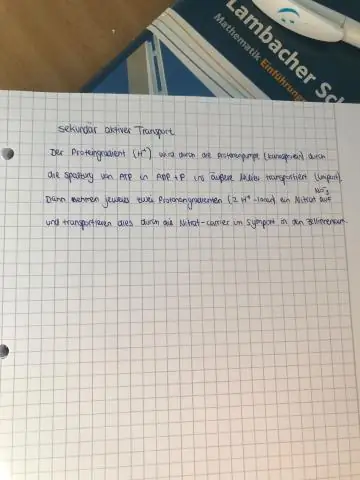 Lambacher Sc
Mathematik Einführung
sekundär aktiver Transport
Der Proteingradient (H⁺) wird durch die Protonenpumpe (tunnelprotein) durch
die Spaltung von ATP in ADP + P ins äußere Milieu transportiert (uniport).
NO₃⁻
Dann nehmen jeweils zwei Protonengradienten (2 H⁺-Ionen) ein Nitrat auf
und transportieren dies durch die Nitrat-carrier im Symport in den Zellinnenraum.